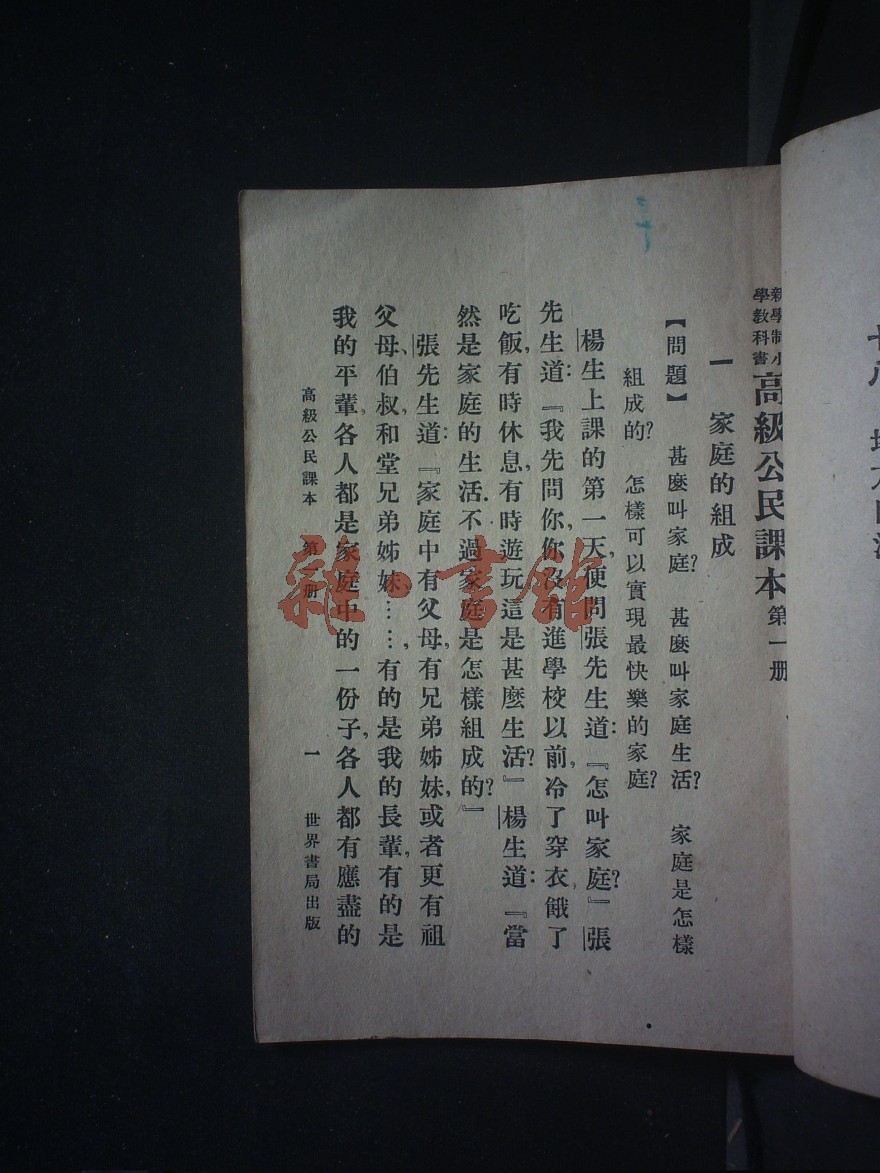 新學制小學教科書 高級公民課本 第一册
一 家庭的組成
【問題】 甚麼叫家庭? 甚麼叫家庭生活? 家庭是怎樣
組成的? 怎樣可以實現最快樂的家庭?
楊生上課的第一天,便問張先生道:『怎叫家庭?』張
先生道:『我先問你,你沒有進學校以前,冷了穿衣,餓了
吃飯,有時休息,有時遊玩,這是甚麼生活?』楊生道:『當
然是家庭的生活.不過家庭是怎樣組成的?』
張先生道:『家庭中有父母,有兄弟姊妹,或者更有祖
父母、伯叔,和堂兄弟姊妹……,有的是我的長輩,有的是
我的平輩,各人都是家庭中的一份子,各人都有應盡的
高級公民課本 第一册 一 世界書局出版
雜·書館